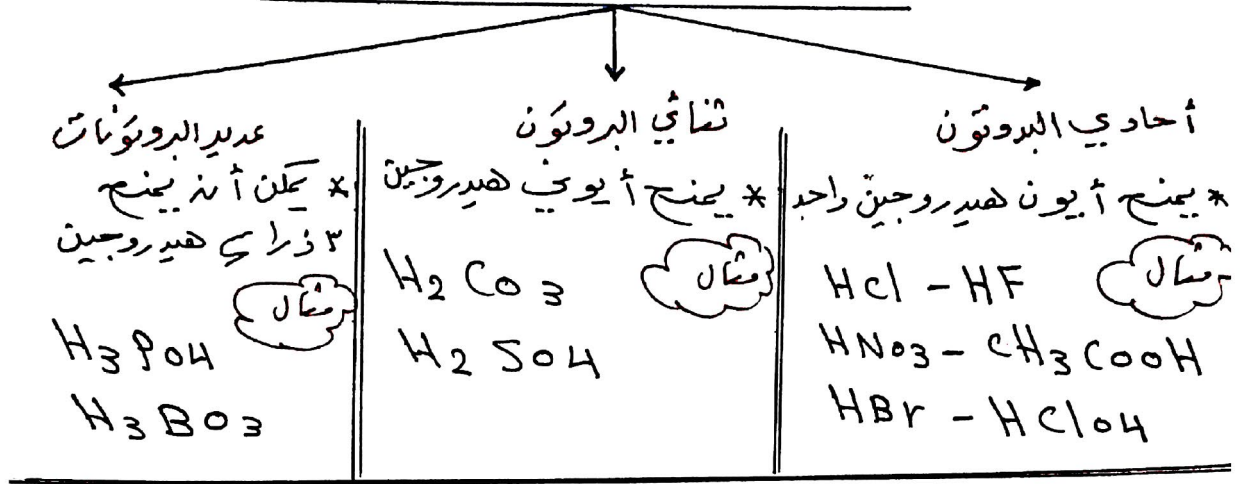 أحادي البروتون
* يمنح أيون هيدروجين واحد
مثال
HCl - HF
HNO3 - CH3COOH
HBr - HClO4
ثنائي البروتون
* يمنح أيوني هيدروجين
مثال
H2CO3
H2SO4
عديد البروتونات
* يمكن أن يمنح
٣ ذرات هيدروجين
مثال
H3PO4
H3BO3